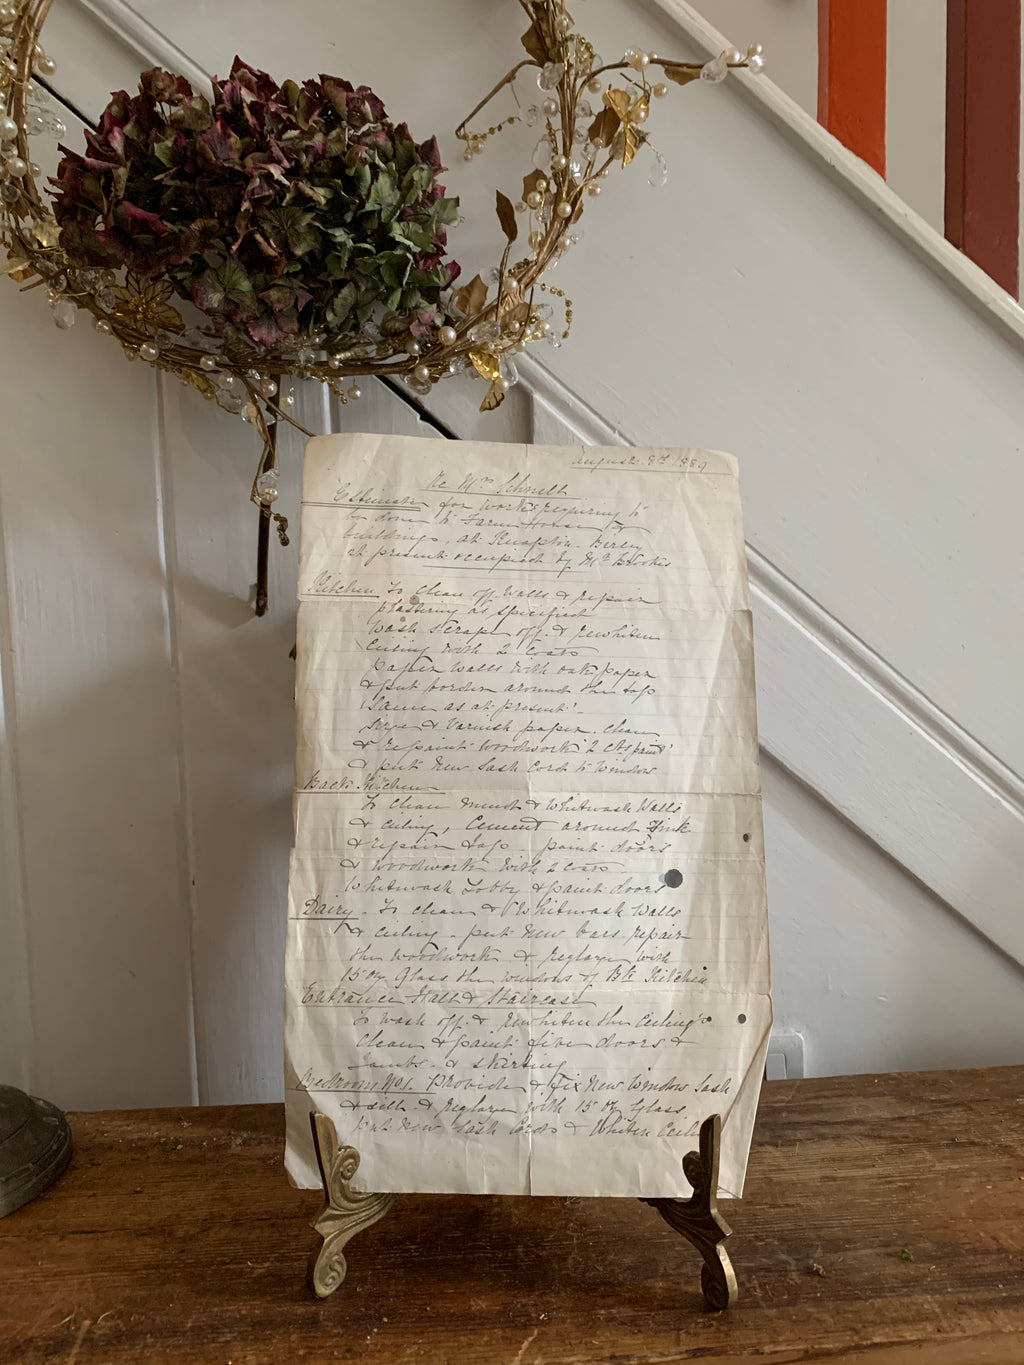 August 8th 1889
Re Mrs Schnell
Estimate for work requiring to
be done to Farm House &
buildings. at Knapton. Birley
at present occupied by Mr Brookes
Kitchen To clean off walls & repair
plastering as specified
Wash scrape off. & rewhiten
Ceiling with 2 Coats
paper walls with oak paper
& put border around the top
same as at present.
Size & varnish paper. clean
& repaint woodwork 2 cts paint
& put new Sash Cord to Window
Back Kitchen
To clean mend & Whitewash Walls
& ceiling, Cement around Sink
& repair top. paint doors
& woodwork with 2 coats.
Whitewash Lobby & paint doors
Dairy. To clean & Whitewash Walls
& ceiling. put new bars. repair
the woodwork & reglaze with
15 oz Glass the windows of Bk Kitchen
Entrance Hall & Staircase
To wash off. & rewhiten the Ceiling's
clean & paint five doors &
Jambs. & skirting
Bedroom No 1. Provide & Fix New Window Sash
& sill. & reglaze with 15 oz Glass.
put new Sash Cords & Whiten